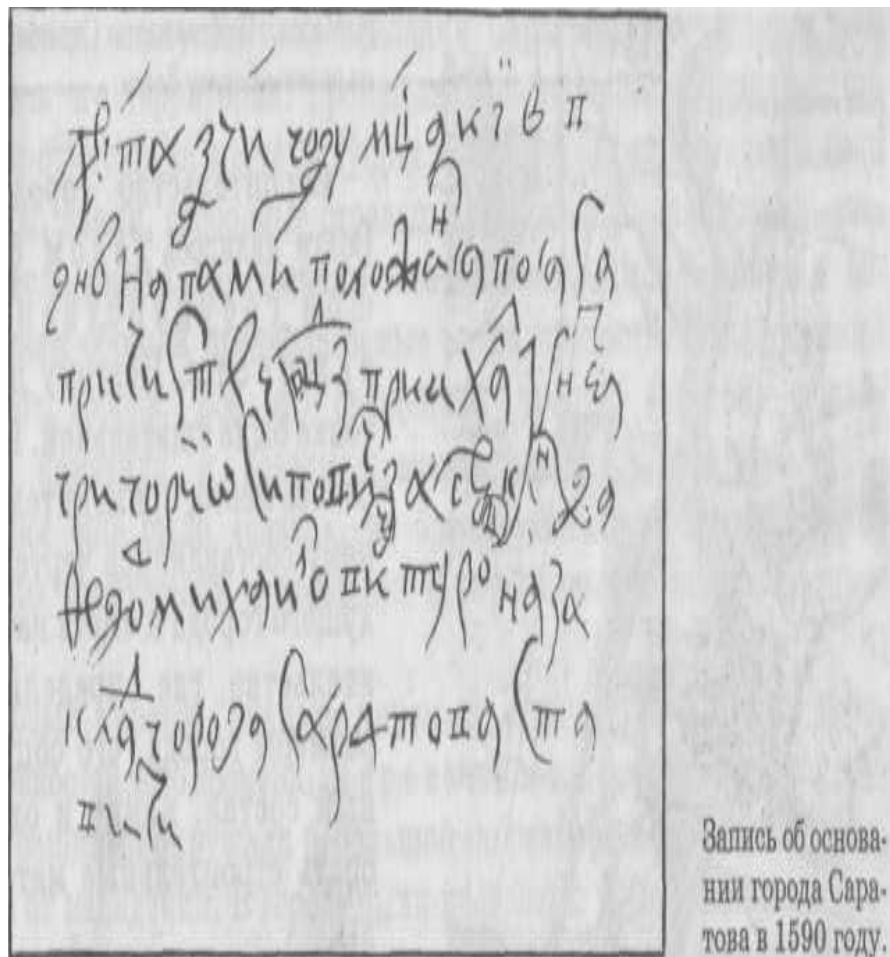 лѣта зчи году мца в
днь на пами положен пояса
пречистыѣ бцы приихал кнзя
григорiй ѡсиповичь засекин да
федо михаило туро на за
клад города саратова ста
вити
Запись об основа-
нии города Сара-
това в 1590 году.